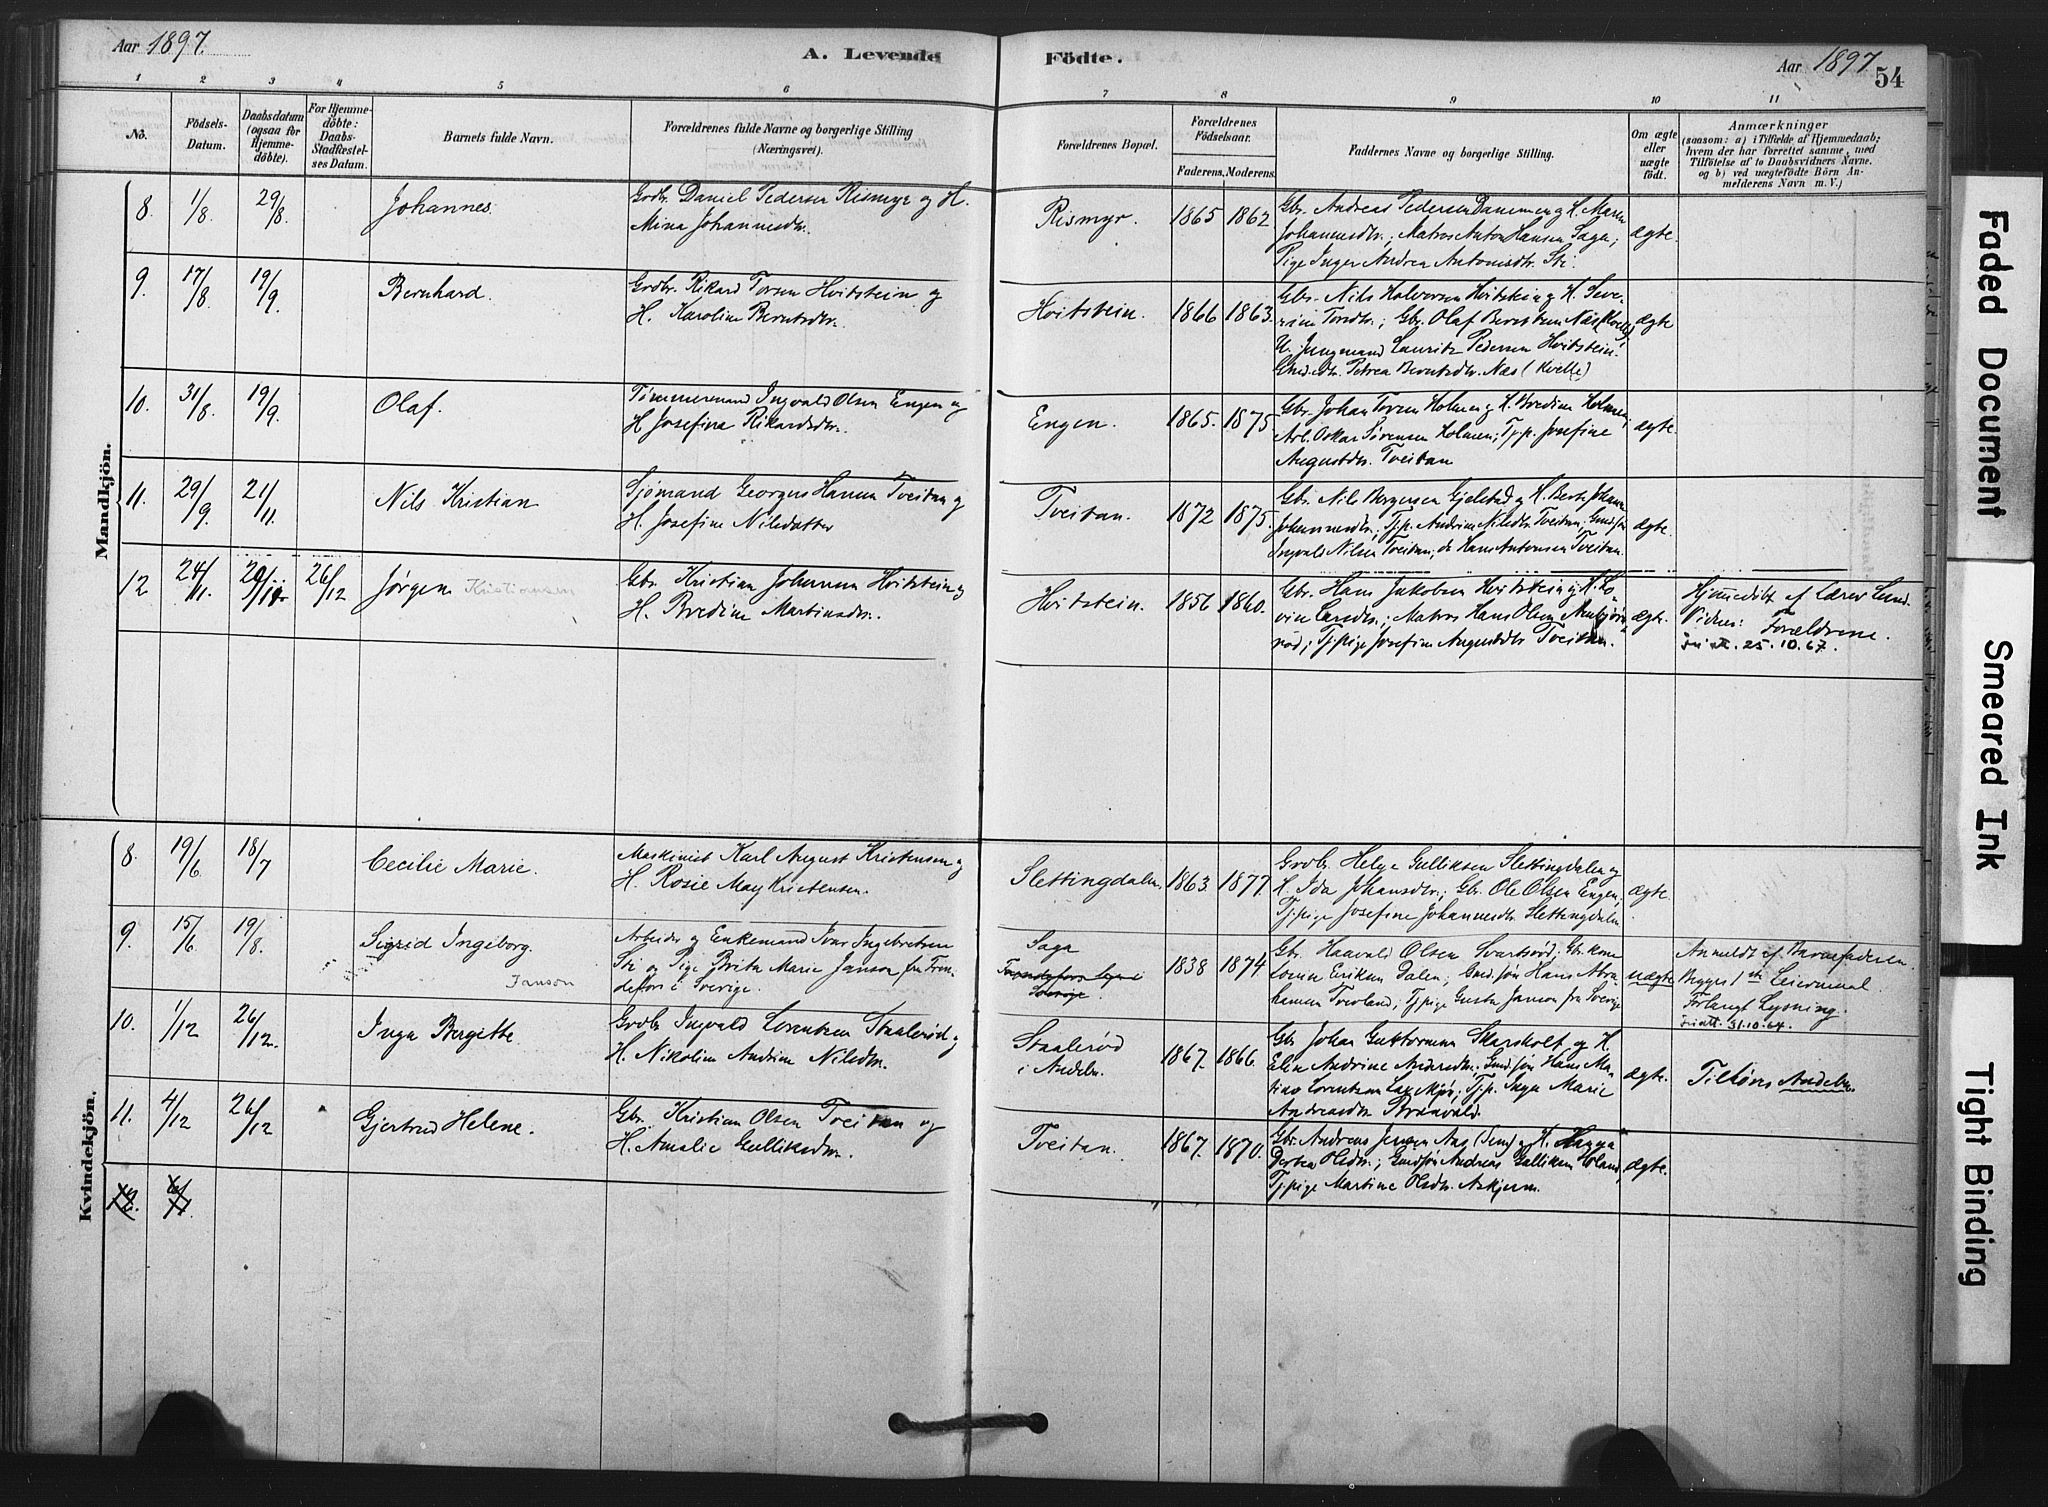 Aar 1897.
A. Levende Födte.
Aar 1897
54
1 2 3 4 5 6 7 8 9 10 11
No.
Födsels-Datum.
Daabsdatum (ogsaa for Hjemmedöbte).
For Hjemmedöbte: Daabs-Stadfæstelses Datum.
Barnets fulde Navn.
Forældrenes fulde Navne og borgerlige Stilling (Næringsvei).
Forældrenes Bopæl.
Forældrenes Födselsaar.
Faderens. Moderens.
Faddernes Navne og borgerlige Stilling.
Om ægte eller uægte födt.
Anmærkninger
(saasom: a) i Tilfælde af Hjemmedaab; hvem der har forrettet samme, med Tilföielse af to Daabsvidners Navne. og b) ved uægtefödte Börn Anmelderens Navn m. V.)
Mandkjön.
8. 1/8 29/8. Johannes.
Grdbr. Daniel Pedersen Rismyr og H.
Mina Johannesdtr.
Rismyr. 1865 1862
Gbr. Andreas Pedersen Dammen og H. Maren
Johannesdtr.; Matros Anton Hansen Saga;
Pige Inger Andrea Antonisdtr. Sti.
ægte.
9. 17/8 19/9. Bernhard.
Grdbr. Rikard Torsen Hvitstein og
H. Karoline Berntsdtr.
Hvitstein. 1866 1863.
Gbr. Nils Halvorsen Hvitstein og H. Seve-
rine Torsdtr.; Gbr. Olaf Berntsen Næs (Kvelle)
U. Jungmand Lauritz Pedersen Hvitstein.
Gmd.dtr. Petrea Berntsdtr. Næs (Kvelle)
ægte
10. 31/8. 19/9. Olaf.
Tømmermand Ingvald Olsen Engen og
H Josefina Rikardsdtr.
Engen. 1865. 1875.
Gbr. Johan Torsen Holmen og H. Bredine Holmen;
Arb. Oskar Sørensen Holmen; Tj.p. Josefine
Augustdtr. Tveitan
ægte.
11. 29/9. 21/11. Nils Kristian
Sjømand Georgius Hansen Tveitan og
H. Josefine Nilsdatter
Tveitan. 1872 1875.
Gbr. Nils Bergersen Gjelstad og H. Berte Johanne
Johannesdtr.; Tj.p. Andrine Nilsdtr. Tveitan, Gmdsøn
Ingvald Nilsen Tveitan; do Hans Antonsen Tveitan.
ægte.
12 24/11. 26/12 Jørgen Kristiansen
Gbr. Kristian Johansen Hvitstein og
H. Bredine Martinsdtr.
Hvitstein. 1856 1860.
Gbr. Hans Jakobsen Hvitstein og H. Lo-
vise Larsdtr.; Matros Hans Olsen
rød; Tj.pige Josefine Augustdtr Tveitan.
ægte.
Hjemmedöbt af Lærer Lund.
Vidner: Forældrene.
25.10.67.
Kvindekjön.
8. 19/6 18/7 Cecilie Marie.
Maskinist Karl August Kristensen og
H. Rosie May Kristensen.
Slettingdalen. 1863. 1877.
Grdbr. Helge Gulliksen Slettingdalen og
H. Ida Johansdtr.; Gbr. Ole Olsen Engen;
Tj.pige Josefine Johannesdtr Slettingdalen
ægte.
9. 15/6 19/8. Sigrid Ingeborg.
Janson
Arbeider og Enkemand Ivar Ingebretsen
Sti og Pige Brita Marie Janson fra Fron-
defors i Sverige.
Saga
1838 1874.
Gbr. Haavald Olsen Svartsrød; Gbr.kone
Eriksen Dalen; Gmdsøn Hans Abra-
hamsen Tveland; Tj.pige Gusta Janson fra Sverige
uægte
Anmeldt af Barnefaderen.
Begges 1ste Leiermaal.
Forlangt Lysning.
31.10.64.
10. 1/12 26/12. Inga Bergitte
Grdbr Ingvald Lorentsen Staalerød og
H. Nikoline Andrine Nilsdtr.
Staalerød
i Andebu. 1867. 1866.
Gbr Johan Guttormsen Skarsholt og H.
Elen Andrine Andersdtr. Gmdsøn Hans Ma-
tias Lorentsen; Tj.p. Inga Marie
Andreasdtr
ægte.
Tilhører Andebu.
11. 4/12 26/12 Gjertrud Helene.
Gbr. Kristian Olsen Tveitan og
H. Amalie Gulliksdtr.
Tveitan. 1867. 1870.
Gbr. Andreas Jensen Aas (Sem) og H.
Olsdtr.; Gmdsøn Andreas Gulliksen
Tj.pige Martine Olsdtr. Askjem.
ægte.
12.
Faded Document
Smeared Ink
Tight Binding